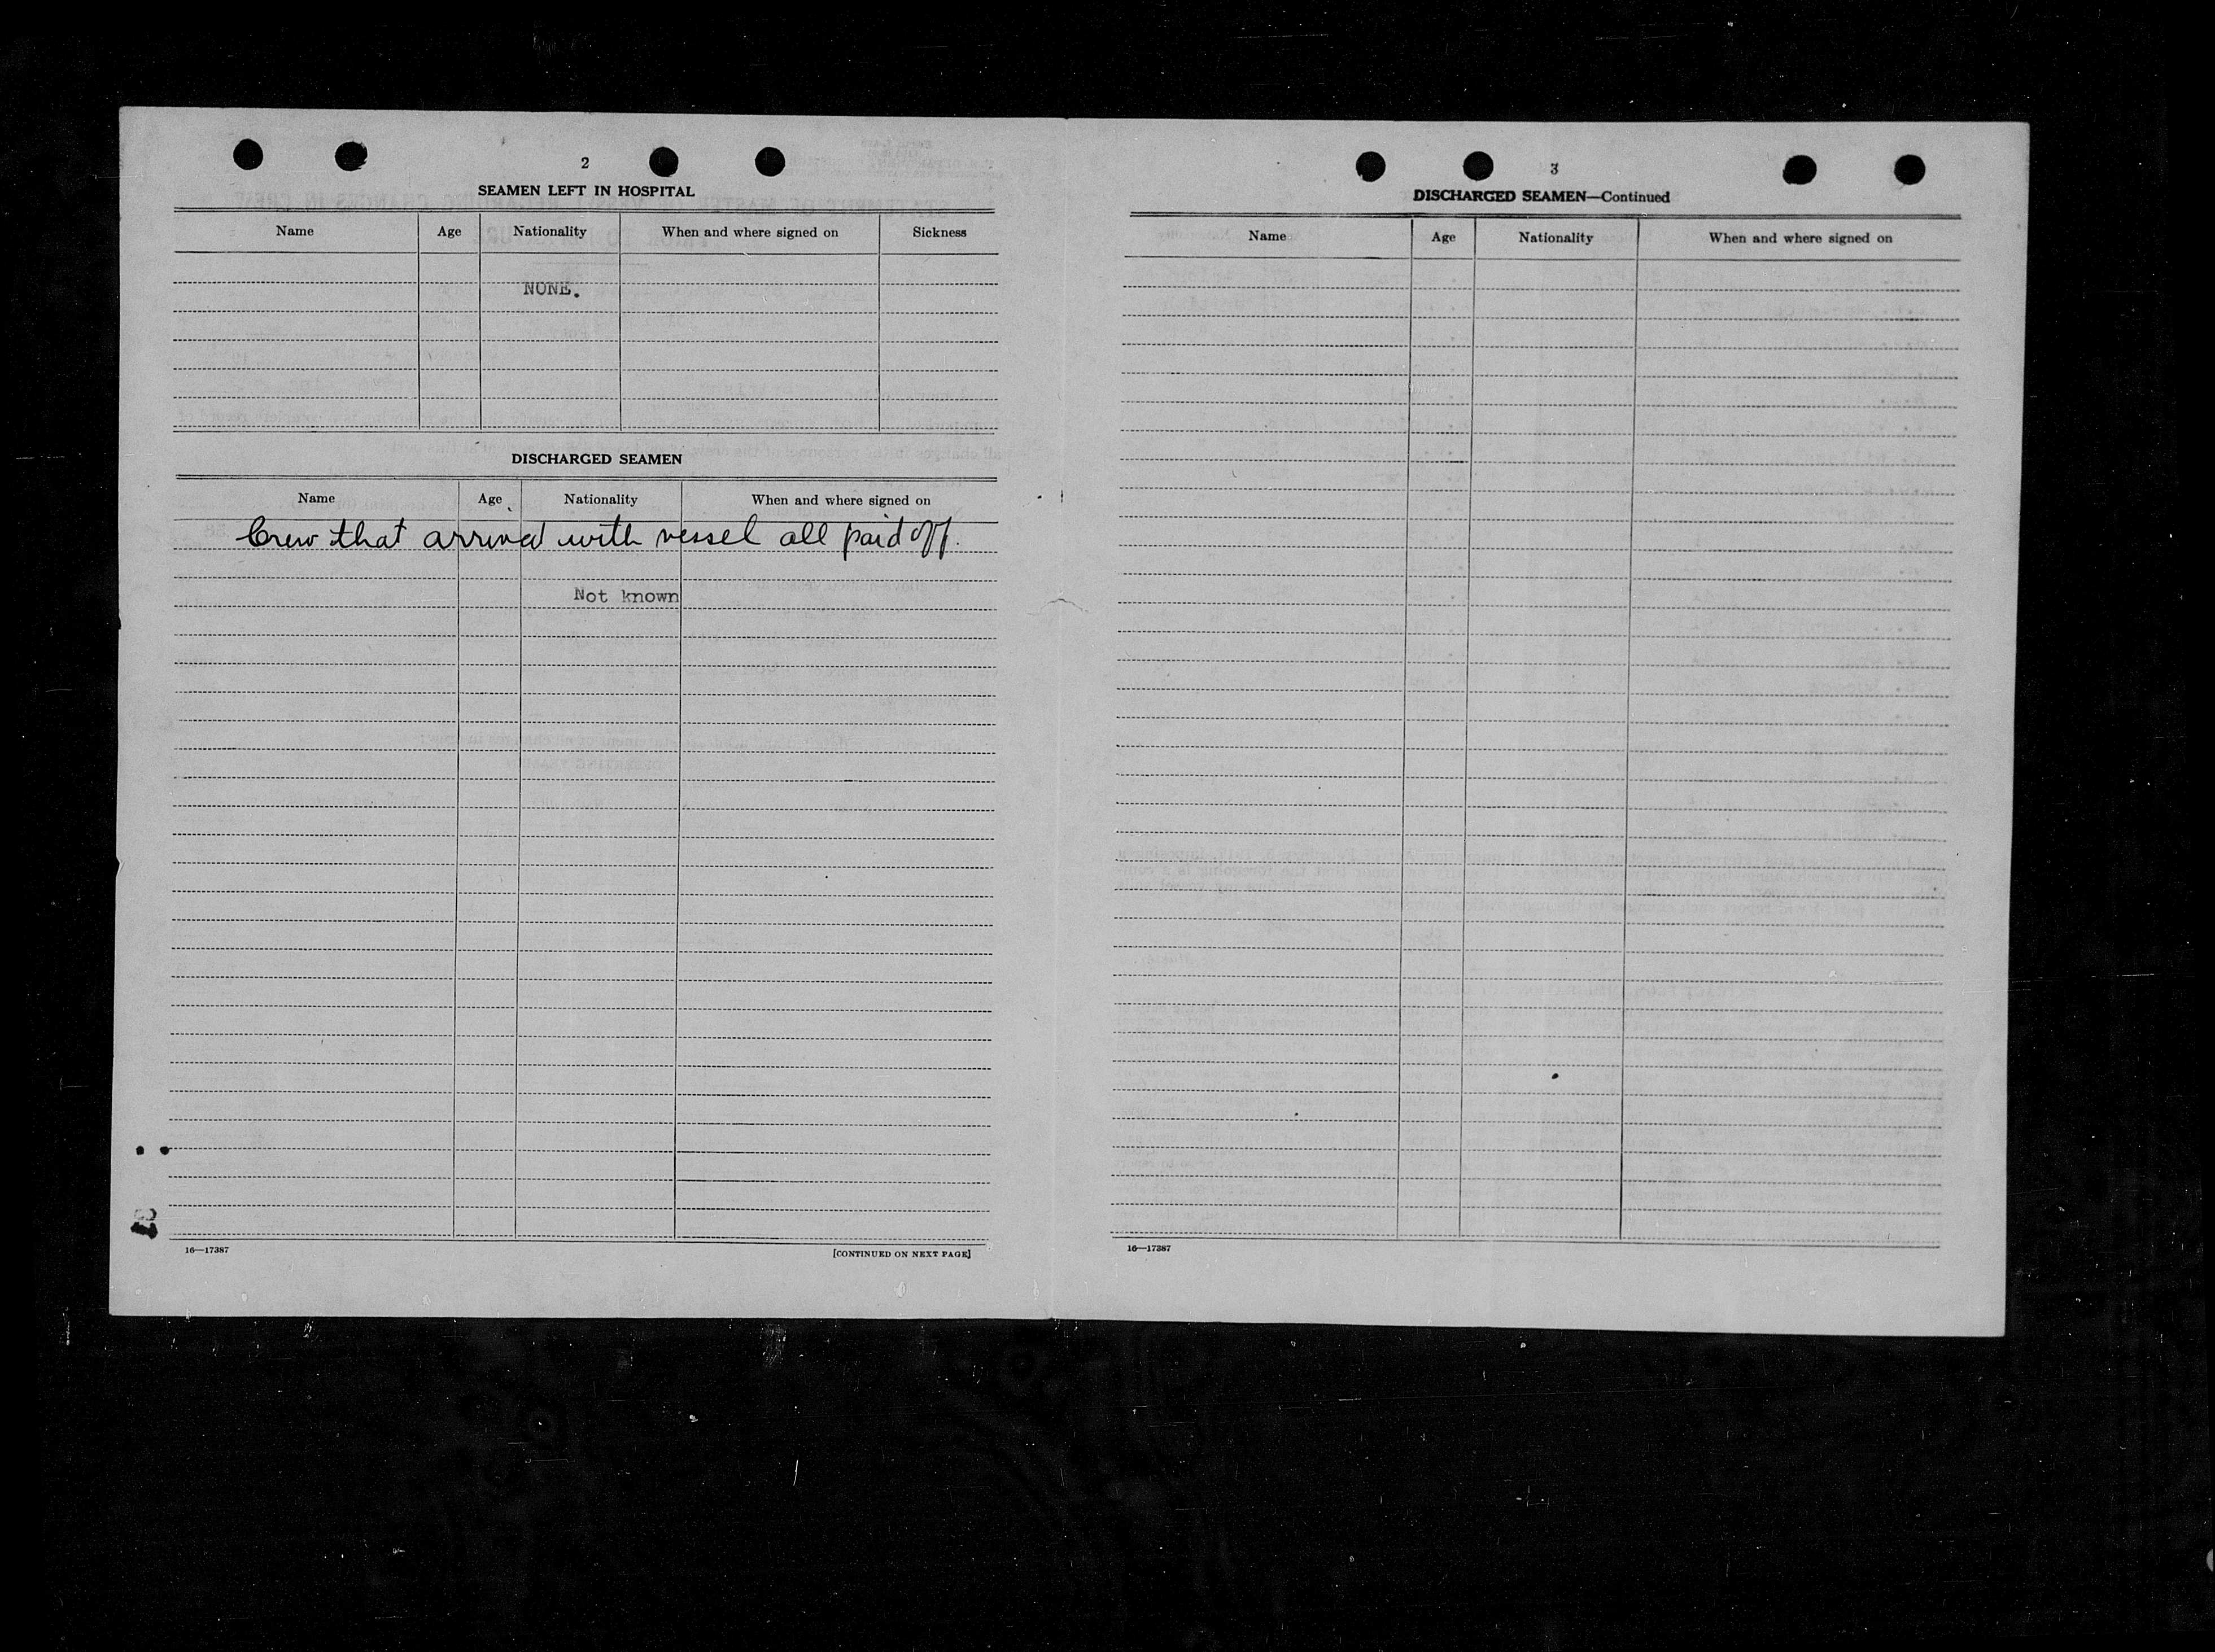 2
SEAMEN LEFT IN HOSPITAL
Name Age Nationality When and where signed on Sickness
NONE.
DISCHARGED SEAMEN
Name Age Nationality When and where signed on
Crew that arrived with vessel all paid off.
Not known
16—17387 [CONTINUED ON NEXT PAGE]
3
DISCHARGED SEAMEN—Continued
Name Age Nationality When and where signed on
16—17387